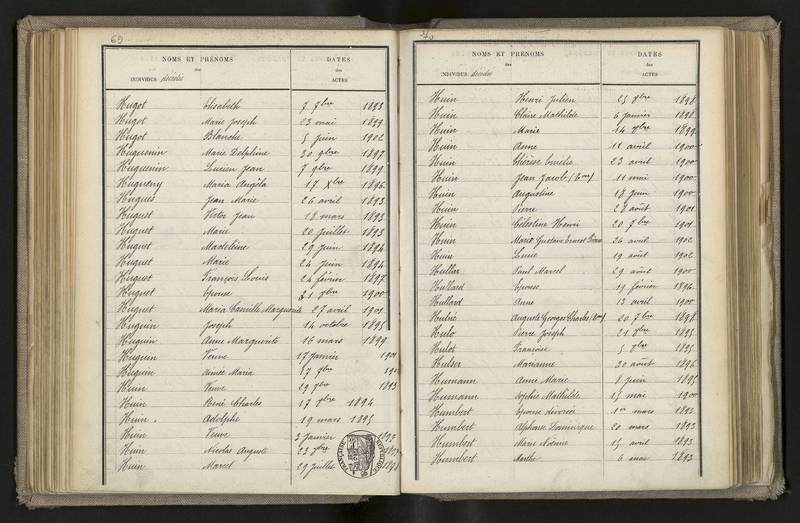 69
NOMS ET PRÉNOMS
des
INDIVIDUS décédés
DATES
des
ACTES
Hugot Elisabeth 7 9bre 1893
Hugot Marie Joseph 23 mai 1899
Hugot Blanche 5 juin 1902
Huguenin Marie Delphine 30 9bre 1897
Huguenin Lucien Jean 7 9bre 1899
Huguény Maria Angéla 17 Xbre 1896
Hugues Jean Marie 26 avril 1893
Huguet Victor Jean 18 mars 1893
Huguet Marie 20 juillet 1893
Huguet Madeleine 29 juin 1894
Huguet Marie 24 juin 1894
Huguet François Louis 24 février 1897
Huguet Epouse 1900
Huguet Maria Camille Marguerite 27 avril 1901
Huguin Joseph 14 octobre 1895
Huguin Anne Marguerite 16 mars 1899
Huguin Veuve 17 janvier 1901
Huguin Aimée Maria
Huin Veuve 29 7bre 1893
Huin René Charles 17 9bre 1894
Huin Adolphe 19 mars 1895
Huin Veuve 3 janvier 1897
Huin Nicolas Auguste 23 7bre
Huin Marcel 29 juillet
70
NOMS ET PRÉNOMS
des
INDIVIDUS décédés
DATES
des
ACTES
Huin Henri Julien 25 9bre 1898
Huin Claire Mathilde 6 janvier 1898
Huin Marie 14 9bre 1899
Huin Anne 11 avril 1900
Huin Thérèse Emélie 23 avril 1900
Huin Jean Jacob (Em) 11 mai 1900
Huin Augustine 18 juin 1900
Huin Pierre 28 août 1901
Huin Célestine Henri 20 7bre 1901
Huin Marie Gustave Ernest 26 avril 1902
Huin Louise 19 août 1902
Hullar Paul Marcel 29 août 1900
Hullard Epouse 19 février 1894
Hullard Anne 13 avril 1900
Hulné Auguste Georges Charles (Em) 20 7bre 1898
Hulo Pierre Joseph 21 9bre 1895
Hulot Françoise 5 9bre 1895
Hulser Marianne 30 août 1896
Humann Anne Marie 8 juin 1895
Humann Sophie Mathilde 15 mai 1900
Humbert Epouse divorcée 1er mars 1893
Humbert Alphonse Dominique 20 mars 1893
Humbert Marie Noémie 15 avril 1893
Humbert Marthe 6 mai 1893